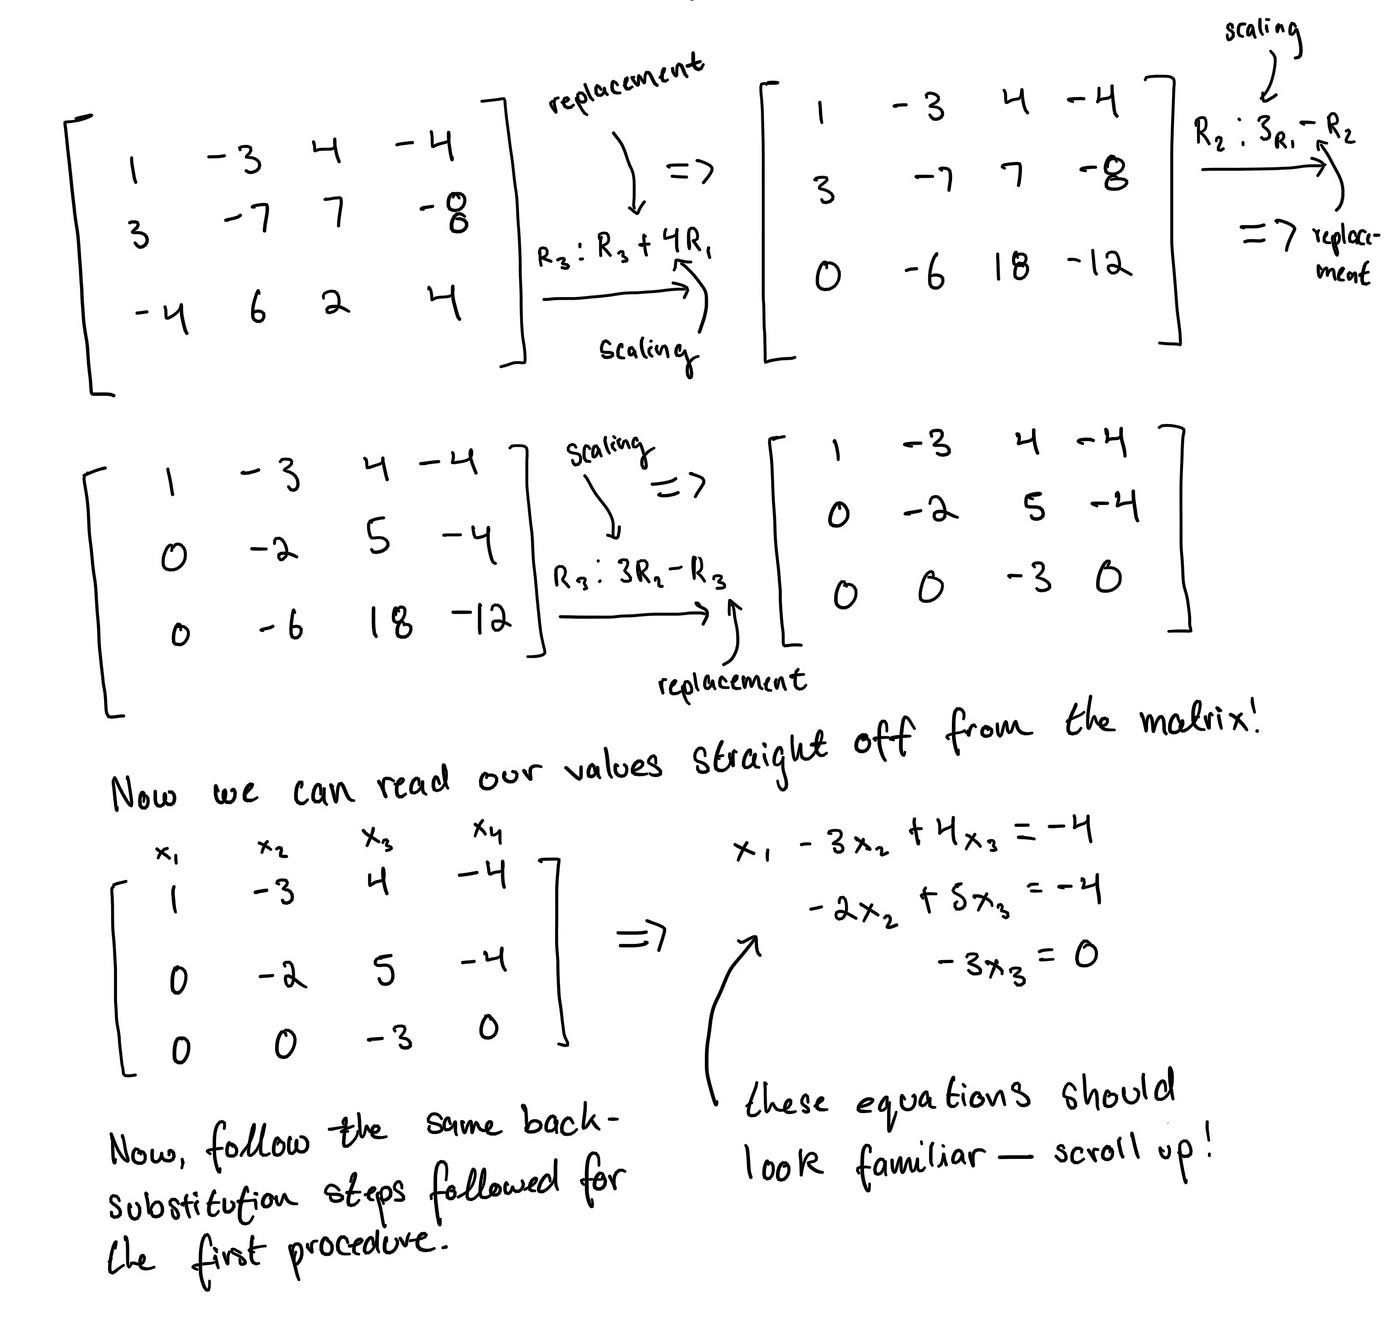 scaling
replacement
1 -3 4 -4
3 -7 7 -8
-4 6 2 4
=>
R₃: R₃ + 4R₁
scaling
1 -3 4 -4
3 -7 7 -8
0 -6 18 -12
R₂: 3R₁ - R₂
=> replace-
ment
1 -3 4 -4
0 -2 5 -4
0 -6 18 -12
scaling
=>
R₃: 3R₂ - R₃
replacement
1 -3 4 -4
0 -2 5 -4
0 0 -3 0
Now we can read our values straight off from the matrix!
x₁ x₂ x₃ x₄
1 -3 4 -4
0 -2 5 -4
0 0 -3 0
=>
x₁ - 3x₂ + 4x₃ = -4
-2x₂ + 5x₃ = -4
-3x₃ = 0
these equations should
look familiar — scroll up!
Now, follow the same back-
substitution steps followed for
the first procedure.